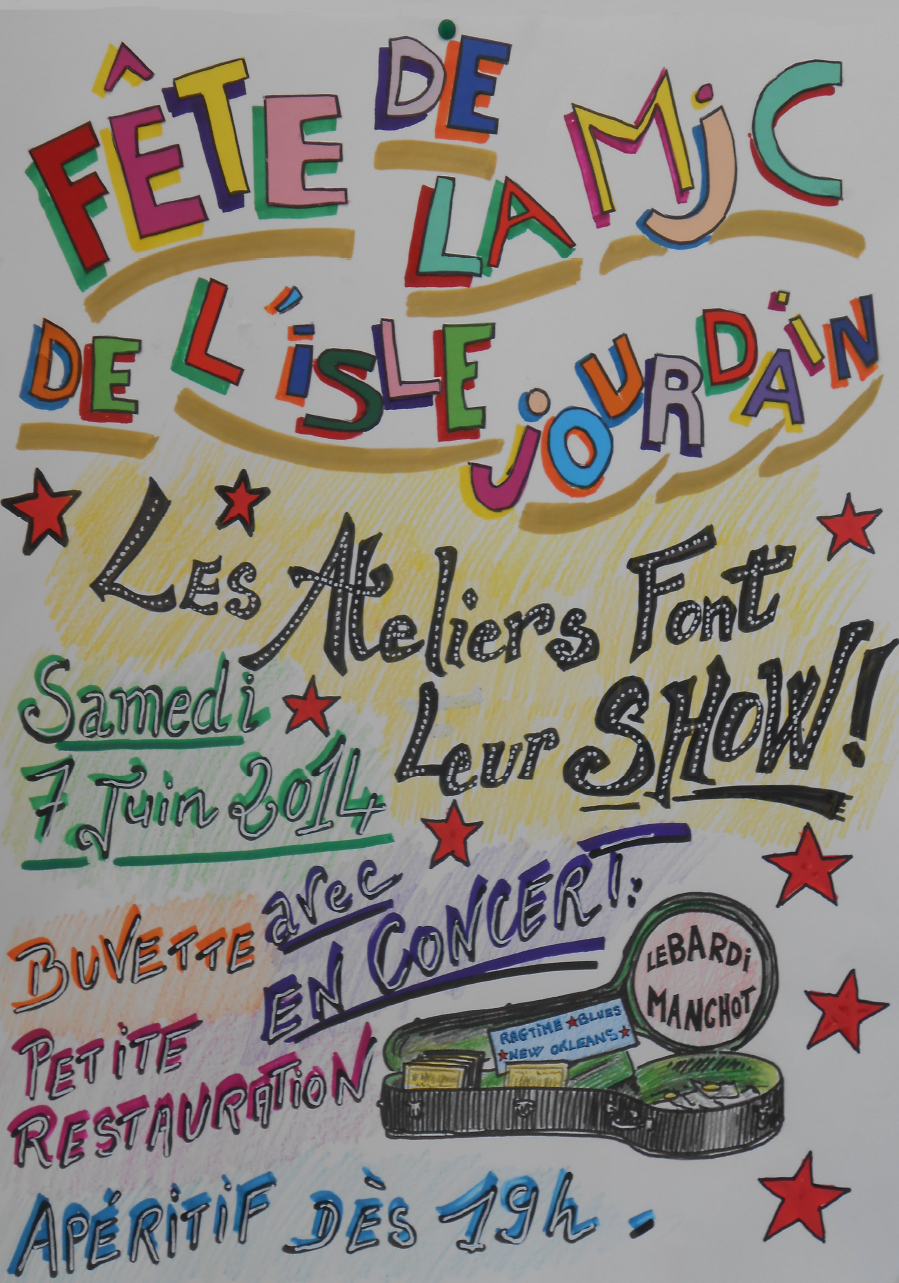 FÊTE DE
LA MJC
DE L'ISLE
JOURDAIN
LES Ateliers Font
Leur SHOW!
Samedi
7 Juin 2014
avec
EN CONCERT:
BUVETTE
LEBARDi
MANCHOT
RAGTIME BLUES
NEW ORLEANS
PETiTE
RESTAURATiON
APÉRiTiF DÈS 19h.